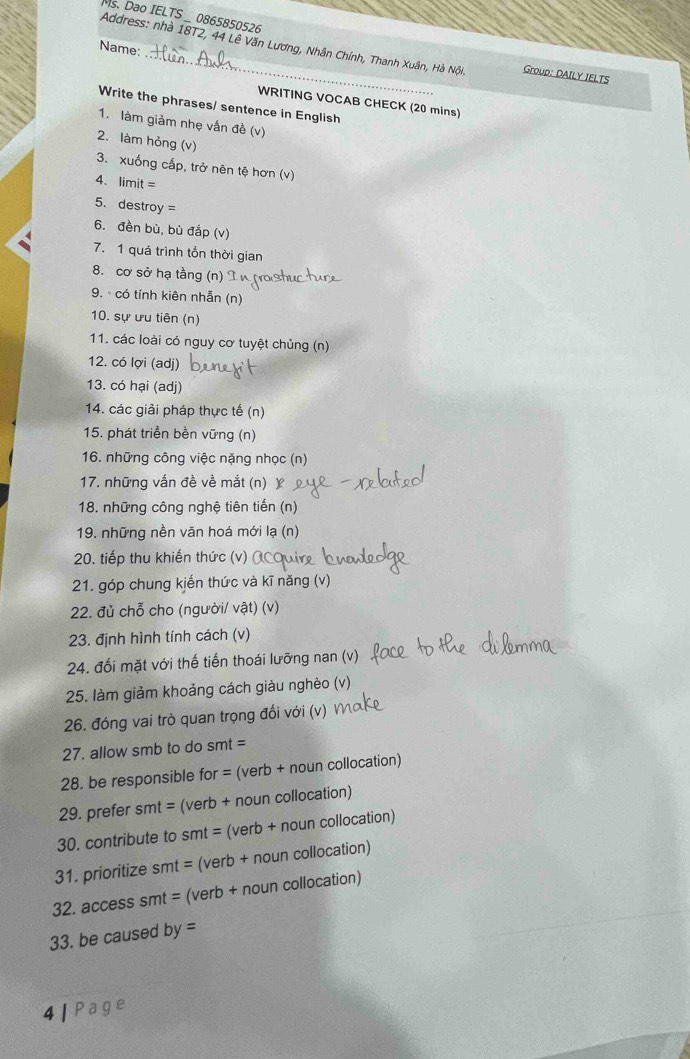 Ms. Dao IELTS _ 0865850526
Address: nhà 18T2, 44 Lê Văn Lương, Nhân Chính, Thanh Xuân, Hà Nội.
Group: DAILY IELTS
Name: Hiền Anh
WRITING VOCAB CHECK (20 mins)
Write the phrases/ sentence in English
1. làm giảm nhẹ vấn đề (v)
2. làm hỏng (v)
3. xuống cấp, trở nên tệ hơn (v)
4. limit =
5. destroy =
6. đền bù, bù đắp (v)
7. 1 quá trình tốn thời gian
8. cơ sở hạ tầng (n) Infrastructure
9. có tính kiên nhẫn (n)
10. sự ưu tiên (n)
11. các loài có nguy cơ tuyệt chủng (n)
12. có lợi (adj) benefit
13. có hại (adj)
14. các giải pháp thực tế (n)
15. phát triển bền vững (n)
16. những công việc nặng nhọc (n)
17. những vấn đề về mắt (n) eye - related
18. những công nghệ tiên tiến (n)
19. những nền văn hoá mới lạ (n)
20. tiếp thu khiến thức (v) acquire knowledge
21. góp chung kiến thức và kĩ năng (v)
22. đủ chỗ cho (người/ vật) (v)
23. định hình tính cách (v)
24. đối mặt với thế tiến thoái lưỡng nan (v) face to the dilemma
25. làm giảm khoảng cách giàu nghèo (v)
26. đóng vai trò quan trọng đối với (v) make
27. allow smb to do smt =
28. be responsible for = (verb + noun collocation)
29. prefer smt = (verb + noun collocation)
30. contribute to smt = (verb + noun collocation)
31. prioritize smt = (verb + noun collocation)
32. access smt = (verb + noun collocation)
33. be caused by =
4 | Page